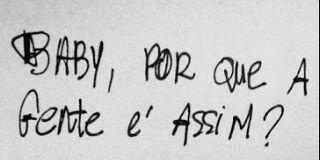 BABY, POR QUE A
GENTE é ASSIM?